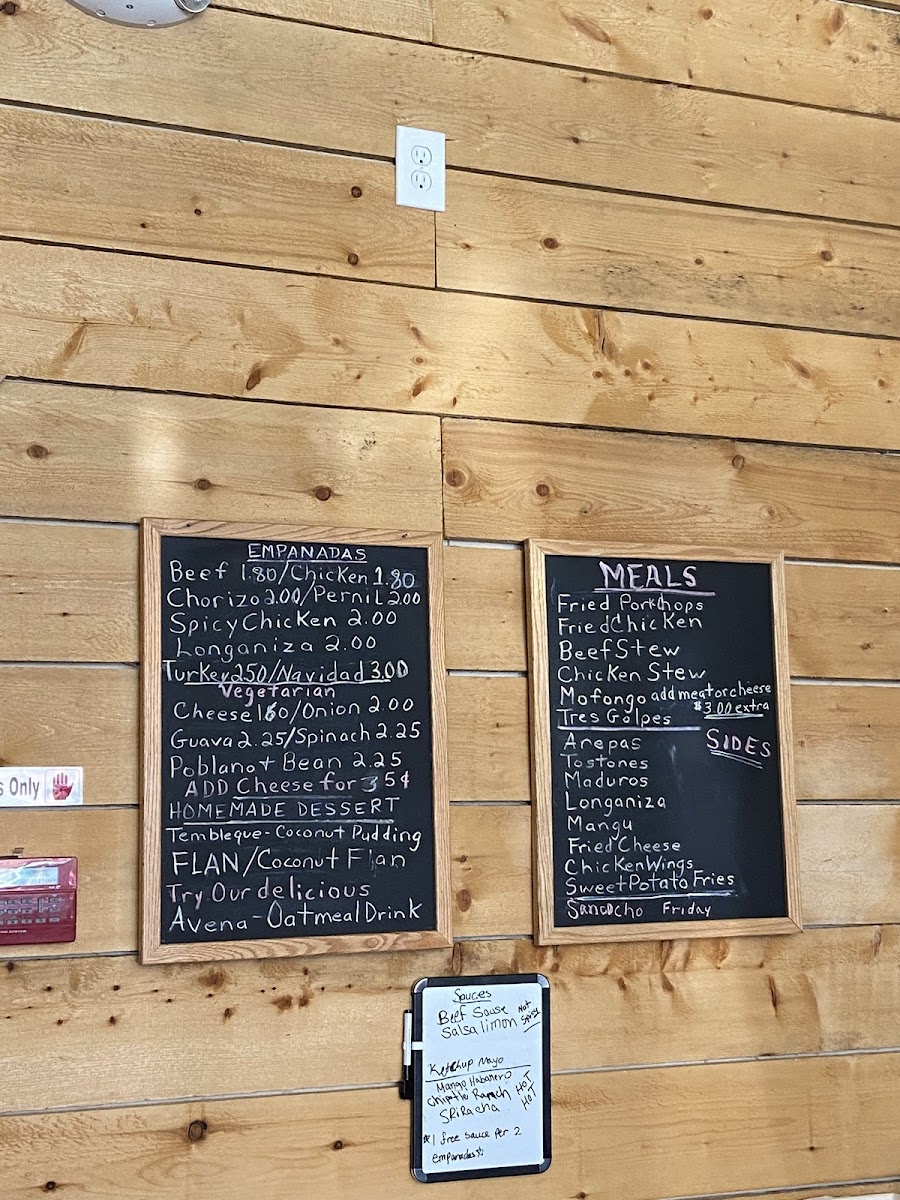 EMPANADAS
Beef 1.80/Chicken 1.80
Chorizo 2.00/Pernil 2.00
Spicy Chicken 2.00
Longaniza 2.00
Turkey 250/Navidad 3.00
Vegetarian
Cheese 160/Onion 2.00
Guava 2.25/Spinach 2.25
Poblano + Bean 2.25
ADD Cheese for 35¢
HOMEMADE DESSERT
Tembleque-Coconut Pudding
FLAN/Coconut Flan
Try Our delicious
Avena-Oatmeal Drink
MEALS
Fried Porkchops
Fried Chicken
Beef Stew
Chicken Stew
Mofongo add meat or cheese
$3.00 extra
Tres Golpes
SIDES
Arepas
Tostones
Maduros
Longaniza
Mangu
Fried Cheese
Chicken Wings
Sweet Potato Fries
Sancocho Friday
s Only
Sauces
Beef Sause
Salsa limon
Not Spicy
Ketchup Mayo
Mango Habanero
Chipotle Ranch HOT
SRiRacha HOT
*1 free sauce per 2
empanadas☆